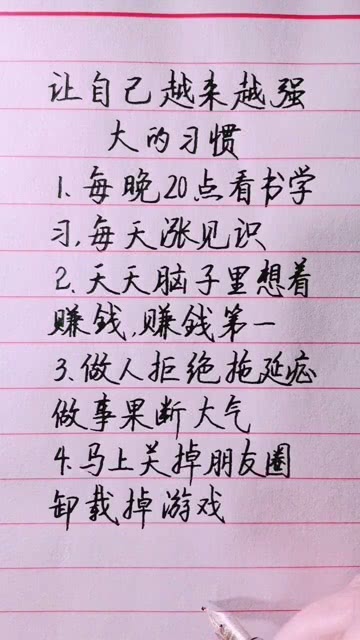 让自己越来越强
大的习惯
1.每晚20点看书学
习,每天涨见识
2.天天脑子里想着
赚钱,赚钱第一
3.做人拒绝拖延症
做事果断大气
4.马上关掉朋友圈
卸载掉游戏